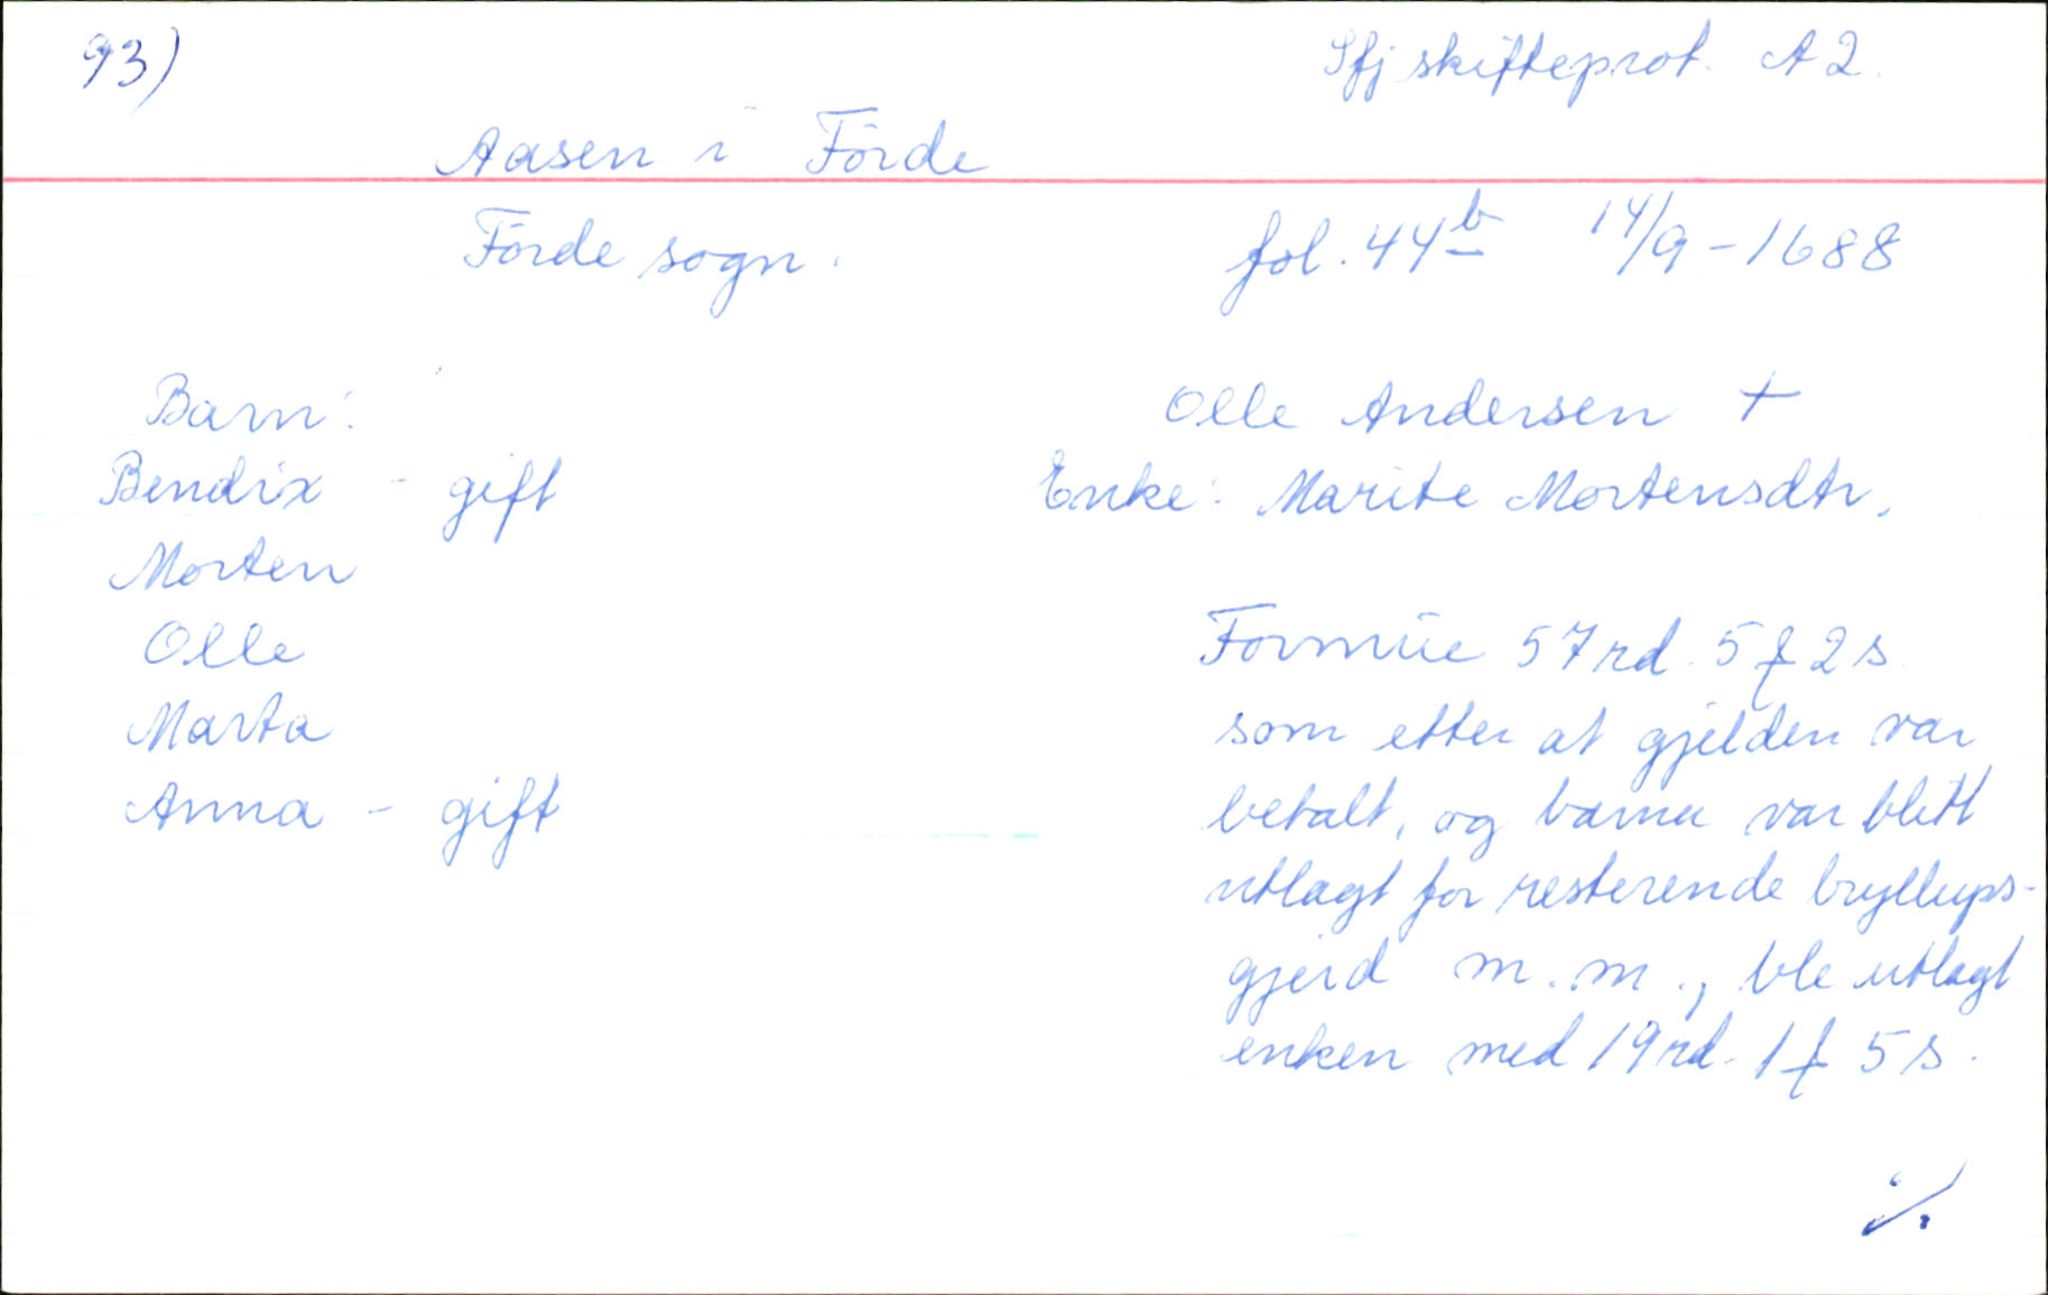 93)
Sfj skifteprot. A 2.
Aasen i Förde
Förde sogn.
fol. 44b 14/9-1688
Barn:
Bendix - gift
Morten
Olle
Marta
Anna - gift
Olle Andersen +
Enke: Marite Mortensdtr.
Formue 57 rd. 5 f 2 s
som etter at gjelden var
betalt, og barna var blitt
utlagt for resterende bryllups-
gjerd m.m., ble utlagt
enken med 19 rd. 1 f 5 s.
./.